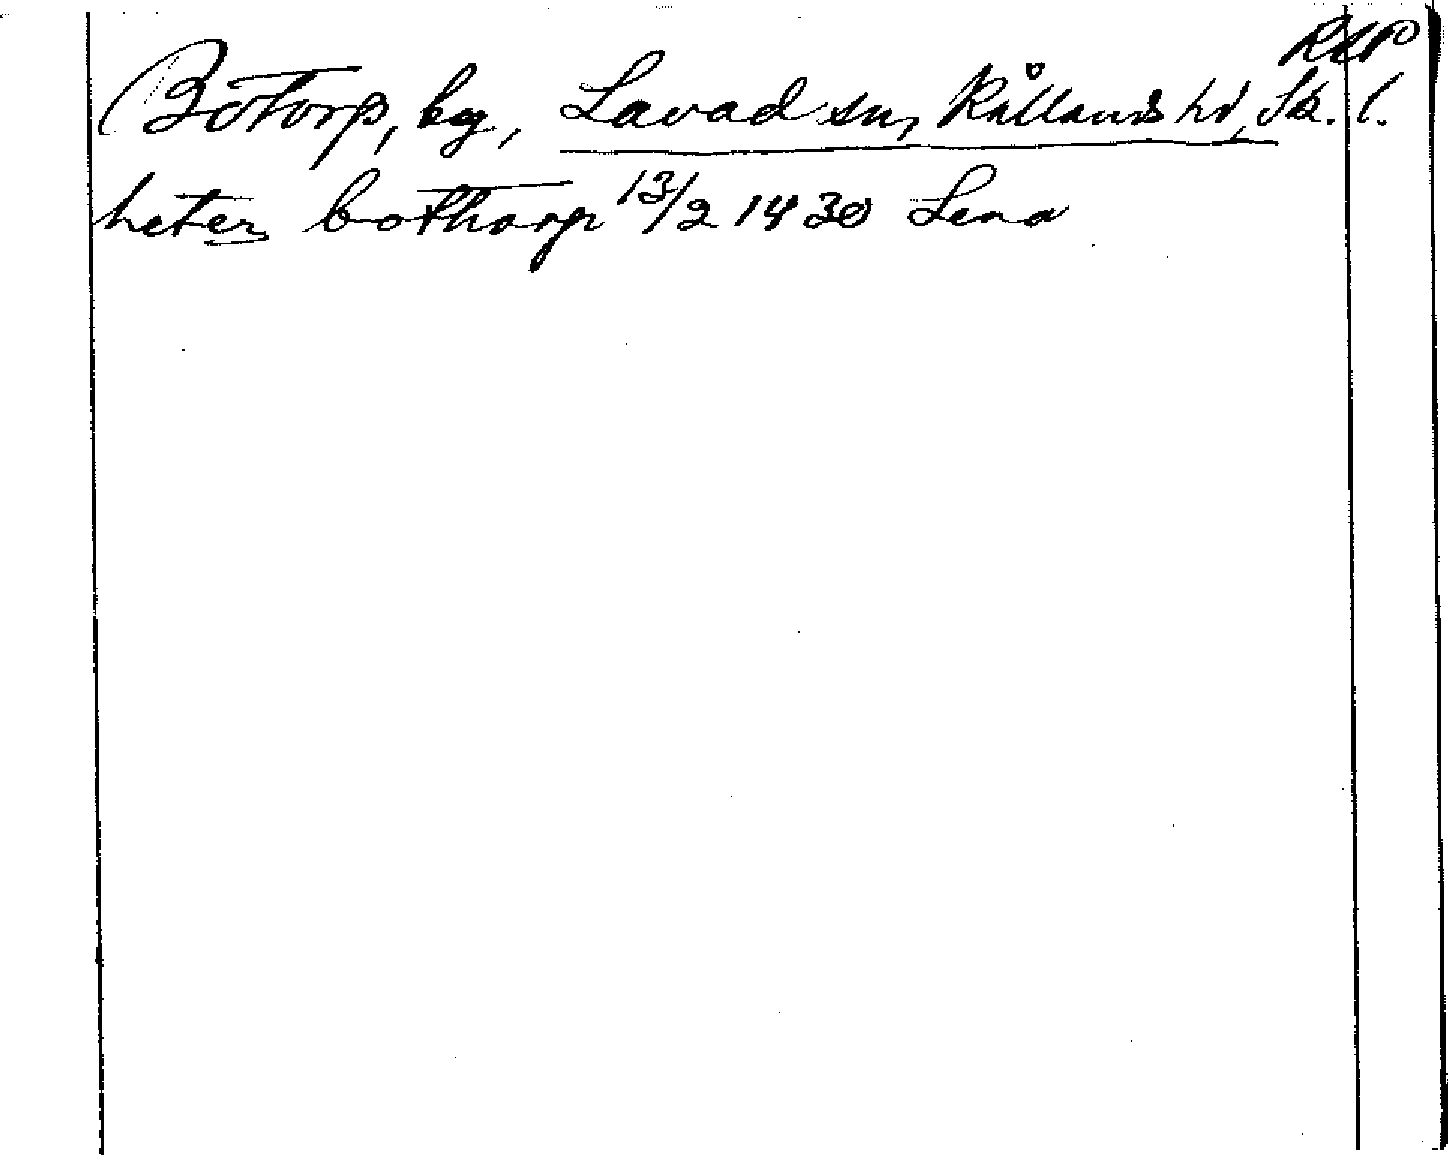 RAP
Botorp, by, Lavad sn, Kållands hd, Sk. l.
heter bothorp 13/2 1430 Lena